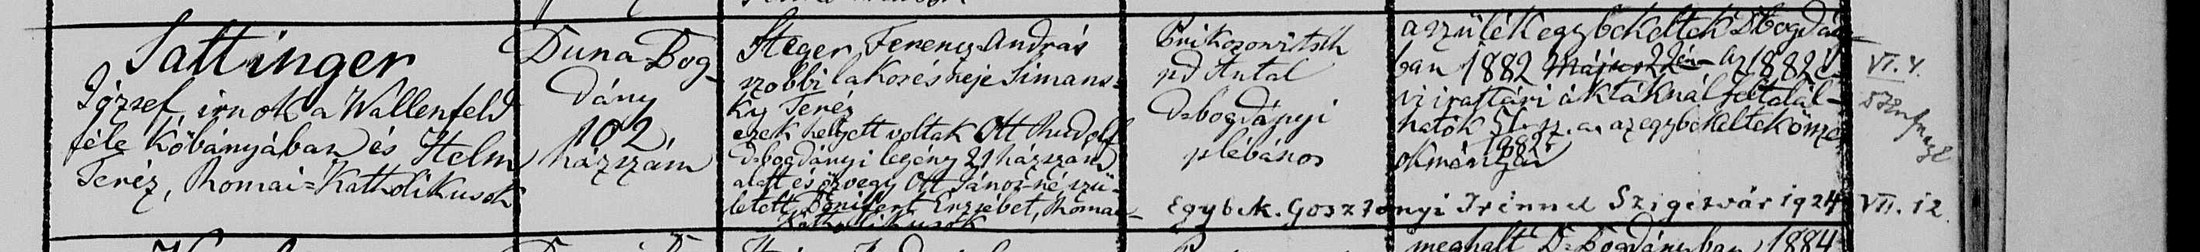 Sattinger
József, irnok a Wallenfeld
féle Kőbányában és Helm
Teréz, Romai=Katholikusok
Duna Bog-
dány
102
házszám
Steger Ferencz András
szobbi lakos és neje Simans-
ky Teréz
ezek helyett voltak Ott Rudolf
D-bogdányi legény 21 házszám
alatt és özvegy Ott János-né szü-
letett Bonifert Erzsébet, Romai-
Katholikusok
pd Antal
D-bogdányi
plébános
a szülék egybekeltek D-bogdány-
ban 1882 Május 22én az 1882
vi irattári aktáknál feltalál-
hatók 51. sz. a. az egybekeltek
1882
okmányai
Egybek. Gosztonyi Irénnel Szigetvár 1924 VII. 12.
VI. 4.
meghalt D-Bogdányban 1884